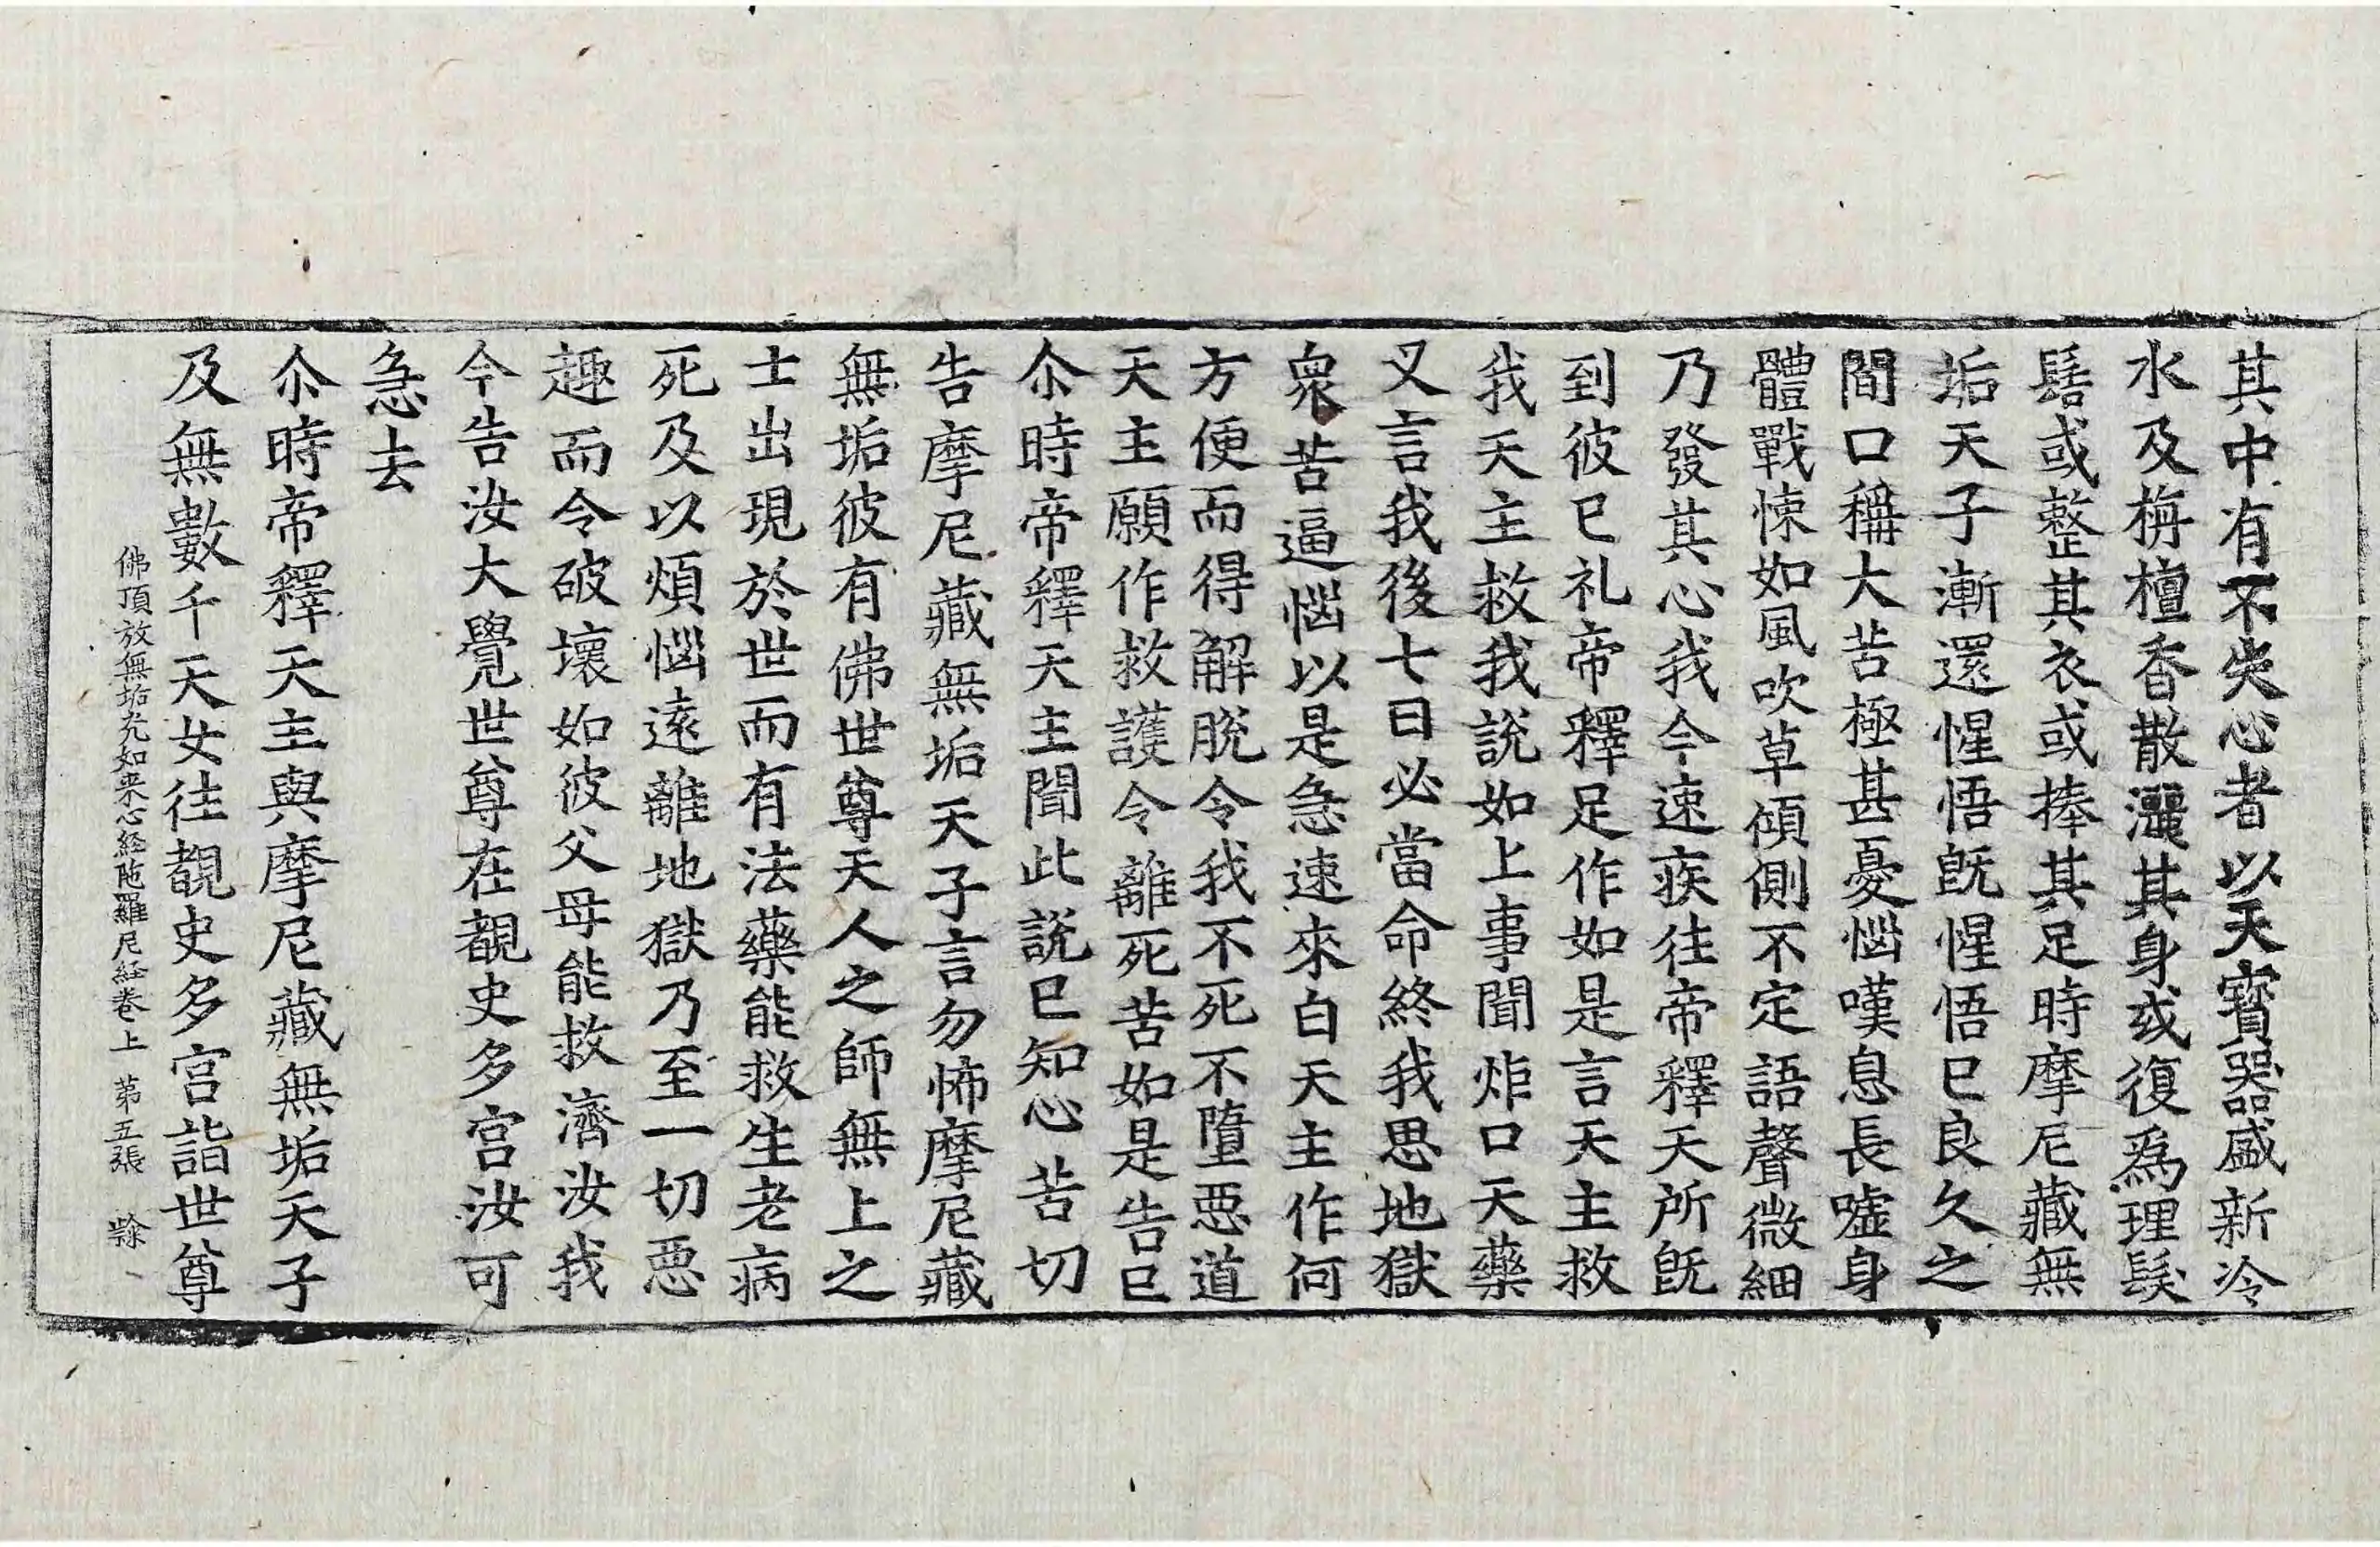 其中有不失心者以天寳器盛新冷
水及栴檀香散灑其身或復爲理髮
髻或整其衣或捧其足時摩尼藏無
垢天子漸還惺悟旣惺悟已良久之
間口稱大苦極甚憂惱嘆息長噓身
體戰悚如風吹草傾側不定語聲微細
乃發其心我今速疾往帝釋天所旣
到彼已礼帝釋足作如是言天主救
我天主救我說如上事聞炸口天藥
叉言我後七日必當命終我思地獄
衆苦逼惱以是急速來白天主作何
方便而得解脫令我不死不墮惡道
天主願作救護令離死苦如是告已
尒時帝釋天主聞此說已知心苦切
告摩尼藏無垢天子言勿怖摩尼藏
無垢彼有佛世尊天人之師無上之
士出現於世而有法藥能救生老病
死及以煩惱遠離地獄乃至一切惡
趣而令破壞如彼父母能救濟汝我
今告汝大覺世尊在覩史多宮汝可
急去
尒時帝釋天主與摩尼藏無垢天子
及無數千天女往覩史多宮詣世尊
佛頂放無垢光如来心經陁羅尼經卷上 第五張